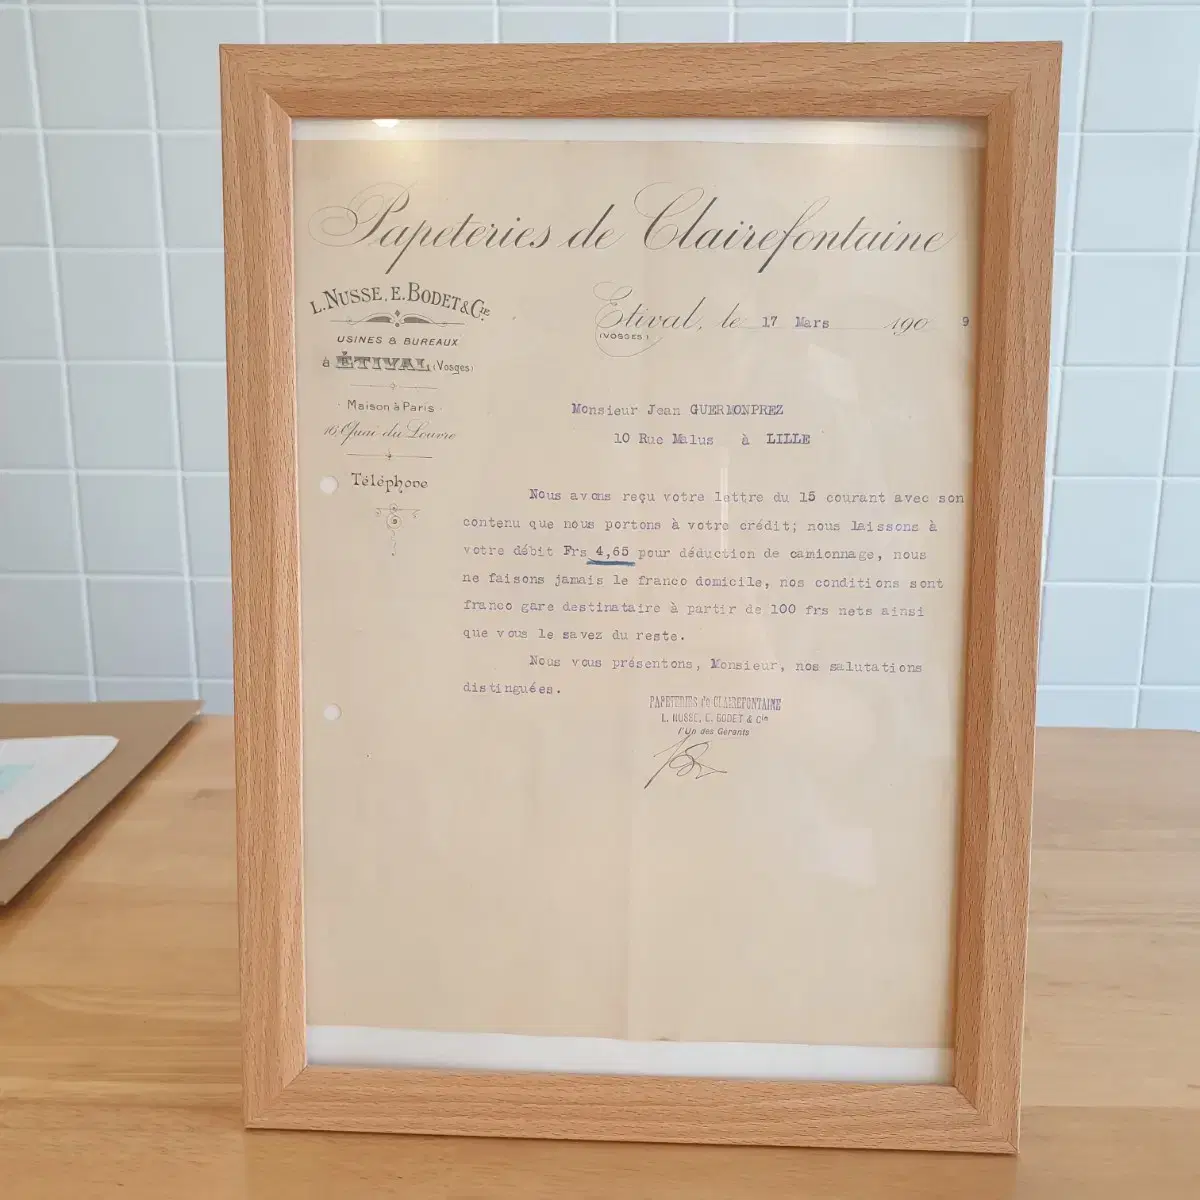 Papeteries de Clairefontaine
L. NUSSE, E. BODET & CIE.
USINES & BUREAUX
à ÉTIVAL (Vosges)
Maison à Paris
16, Quai du Louvre
Téléphone
Etival, le 17 Mars 190 9
(VOSGES)
Monsieur Jean GUERMONPREZ
10 Rue Malus à LILLE
Nous avons reçu votre lettre du 15 courant avec son
contenu que nous portons à votre crédit; nous laissons à
votre débit Frs 4,65 pour déduction de camionnage, nous
ne faisons jamais le franco domicile, nos conditions sont
franco gare destinataire à partir de 100 frs nets ainsi
que vous le savez du reste.
Nous vous présentons, Monsieur, nos salutations
distinguées.
PAPETERIES de CLAIREFONTAINE
L. NUSSE, E. BODET & Cie
l'Un des Gérants